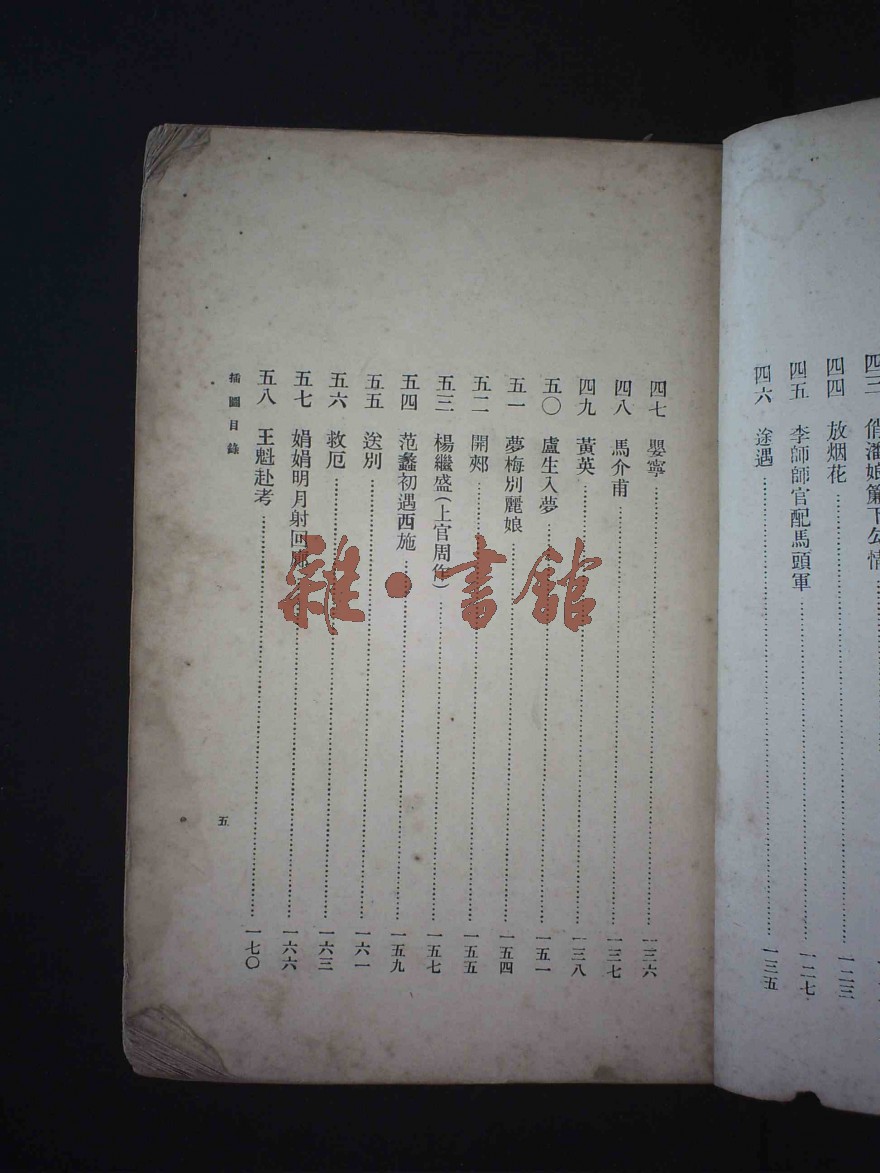 四三 俏潘娘簾下勾情
四四 放烟花……一二三
四五 李師師官配馬頭軍……一二七
四六 途遇……一三五
四七 嬰寧……一三六
四八 馬介甫……一三七
四九 黃英……一三八
五〇 盧生入夢……一五一
五一 夢梅別麗娘……一五四
五二 開郟……一五五
五三 楊繼盛(上官周作)……一五七
五四 范蠡初遇西施……一五九
五五 送別……一六一
五六 救厄……一六三
五七 娟娟明月射回廊……一六六
五八 王魁赴考……一七〇
插圖目錄
五
雜·書館